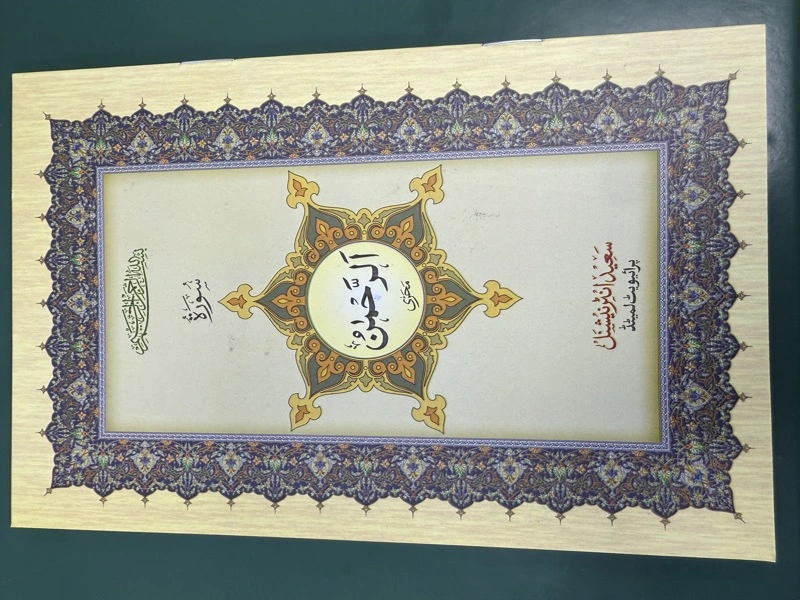 بسم الله الرحمن الرحيم
سُورَةُ
اَلرَّحْمٰن
مَعْرٰی
سَعِیْد اِنٹرنیشنل
پرائیویٹ لمیٹڈ